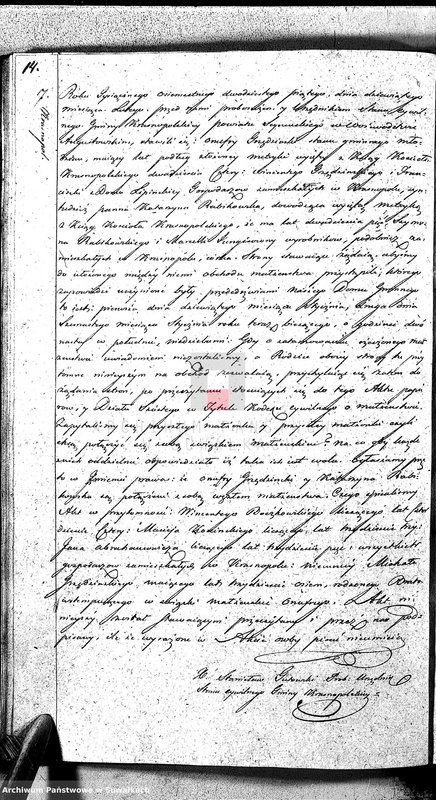 14.
7. Krasnopol.
Roku tysiącznego osiemsetnego dwudziestego piątego, dnia dziewiątego
miesiąca Lutego. przed nami proboszczem y Urzędnikiem Stanu Cywil-
nego Gminy Krasnopolskiey powiatu Seyneńskiego w Woiewództwie
Augustowskim, stawili się: Onufry Grzędziński stanu gminnego mło-
dzian, maiący lat podług złożoney metryki wyiętey z Ksiąg Kościoła
Krasnopolskiego dwadzieścia cztery:
Gospodarzów zamieszkałych w Krasnopolu, ny-
panna Katarzyna Rutkowska, dowodząca wyiętą metryką
z Ksiąg Kościoła Krasnopolskiego, że ma lat dwadzieścia pięć, Szymo-
na Rutkowskiego i Maryelli wyrobników, podobnież za-
mieszkałych w Krasnopolu, córka. Strony stawaiące żądaią, abyśmy
do ułożonego między niemi obchodu małżeństwa przystąpili, którego
zapowiedzi uczynione były przededrzwiami naszego Domu Gminnego
to iest: pierwsza dnia dziewiątego miesiąca Stycznia, druga dnia
Szesnastego miesiąca Stycznia roku teraz bieżącego, o godzinie dwu-
nastey w południe, niedzielami. Gdy o zatamowaniu rzeczonego mał-
żeństwa uwiadomieni niezostaliśmy, a Rodzice obòiey strony
ninieyszym na obchod zezwalaią, przychylaiąc się zatem do
żądania stron, po przeczytaniu stawaiących się do tego Aktu papie-
rów, y Działu Szóstego w Tytule Kodexu cywilnego o małżeństwie.
Zapytaliśmy się przyszłego małżonka y przyszłey małżonki: czyli
chcą połączyć się z sobą związkiem małżeńskim? na co gdy każde
z nich oddzielnie odpowiedziało iż taka ich iest wola. Ogłaszamy prze-
to w Imieniu prawa: że Onufry Grzędziński y Katarzyna Rut-
kowska są połączeni z sobą węzłem małżeństwa. Czego spisaliśmy
Akt w przytomności: Wincentego Baczkowskiego liczącego lat
cztery: Macieja liczącego, lat trzydzieści trzy
Jana Abrachamowicza liczącego lat trzydzieści pięć: wszystkich
gospodarzów zamieszkałych w Krasnopolu: niemniey Michała
Grzędzińskiego, maiącego lat trzydzieści osiem, rodzonego Brata
wstępuiącego w związki małżeńskie Onufrego. Akt ni-
nieyszy został stawaiącym przeczytany i przez nas pod-
pisany, ile że wyrażone w Akcie osoby pisać nieumieią
X. Stanisław Gutowski Prob: Urzędnik
Stanu cywilnego Gminy Krasnopolskiey
Archiwum Państwowe w Suwałkach